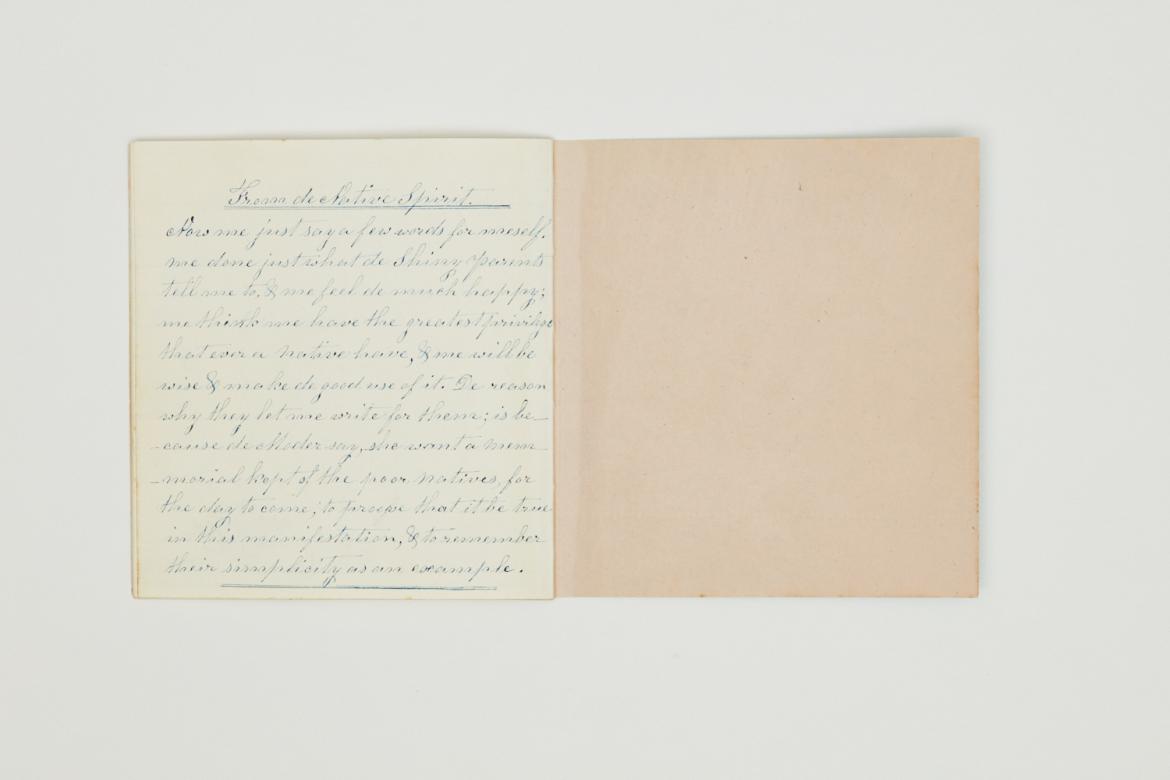 From de Native Spirit.
Now me just say a few words for meself.
me done just what de Shiny Parents
tell me to, & me feel de much happy;
me think me have the greatest privilige
that ever a native have, & me will be
wise & make de good use of it. De reason
why they let me write for them; is be-
-cause de Moder say, she want a mem-
-morial kept of the poor natives, for
the day to come; to proove that it be true
in this manifestation, & to remember
their simplicity as an example.